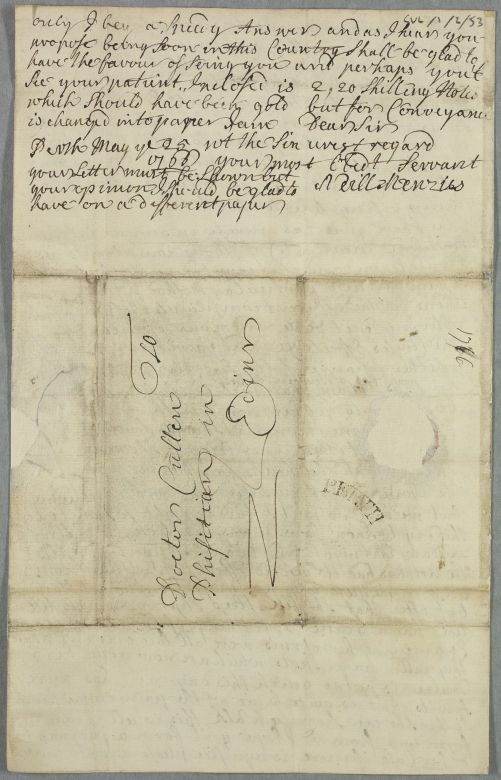 CUL 1/2/53
only I beg a speedy Answer and as I hear you
propose being soon in this Country shall be glad to
have the favour of seing you and perhaps you'l
See your patient, Inclosed is 2, 20 shilling Notes
which should have been gold but for Conveyance
is changed into paper I am Dear Sir
Perth May ye 25 wt the Sincerest regard
1766 your most Obedt Servant
your Letter must be shown but
your opinion I should be glad to Neill Menzies
have on a different paper
To
Doctor Cullen
Phisitian in
Edinr
1766
PERTH